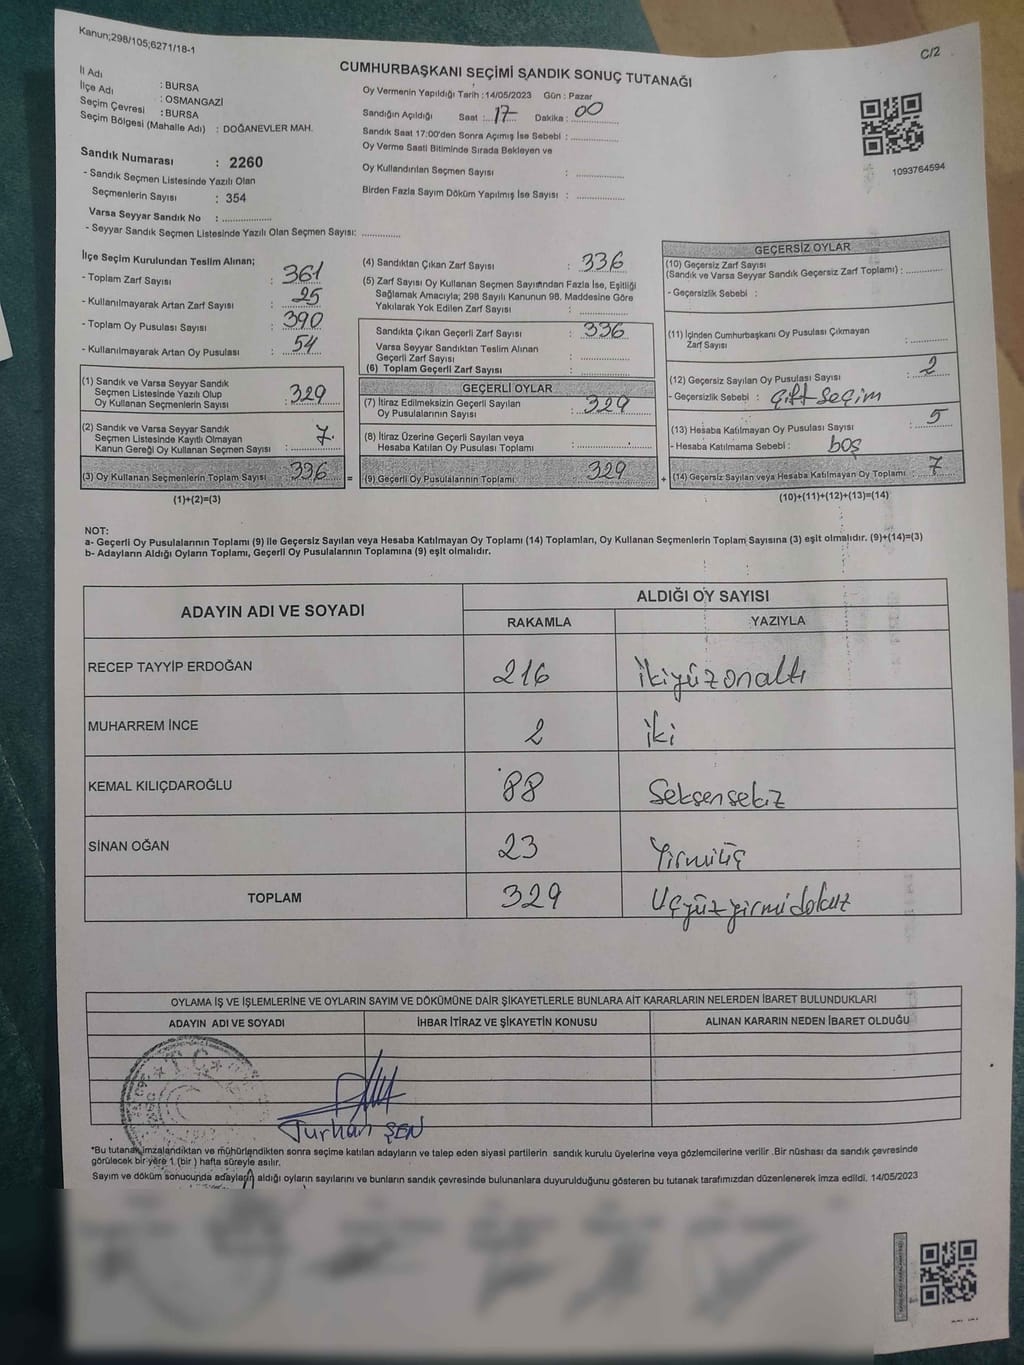 Kanun;298/105;6271/18-1
C/2
CUMHURBAŞKANI SEÇİMİ SANDIK SONUÇ TUTANAĞI
İl Adı : BURSA
İlçe Adı : OSMANGAZİ
Seçim Çevresi : BURSA
Seçim Bölgesi (Mahalle Adı) : DOĞANEVLER MAH.
Sandık Numarası : 2260
- Sandık Seçmen Listesinde Yazılı Olan
Seçmenlerin Sayısı : 354
Varsa Seyyar Sandık No : ................
- Seyyar Sandık Seçmen Listesinde Yazılı Olan Seçmen Sayısı: ............
Oy Vermenin Yapıldığı Tarih :14/05/2023 Gün : Pazar
Sandığın Açıldığı Saat : 17 Dakika : 00
Sandık Saat 17:00'den Sonra Açımış İse Sebebi : ................
Oy Verme Saati Bitiminde Sırada Bekleyen ve
Oy Kullandırılan Seçmen Sayısı : ................
Birden Fazla Sayım Döküm Yapılmış İse Sayısı : ................
1093764594
İlçe Seçim Kurulundan Teslim Alınan;
- Toplam Zarf Sayısı : 361
- Kullanılmayarak Artan Zarf Sayısı : 25
- Toplam Oy Pusulası Sayısı : 390
- Kullanılmayarak Artan Oy Pusulası : 54
(1) Sandık ve Varsa Seyyar Sandık
Seçmen Listesinde Yazılı Olup
Oy Kullanan Seçmenlerin Sayısı : 329
(2) Sandık ve Varsa Seyyar Sandık
Seçmen Listesinde Kayıtlı Olmayan
Kanun Gereği Oy Kullanan Seçmen Sayısı : 7.
(3) Oy Kullanan Seçmenlerin Toplam Sayısı : 336 =
(1)+(2)=(3)
(4) Sandıktan Çıkan Zarf Sayısı : 336
(5) Zarf Sayısı Oy Kullanan Seçmen Sayısından Fazla İse, Eşitliği
Sağlamak Amacıyla; 298 Sayılı Kanunun 98. Maddesine Göre
Yakılarak Yok Edilen Zarf Sayısı : ................
Sandıkta Çıkan Geçerli Zarf Sayısı : 336
Varsa Seyyar Sandıktan Teslim Alınan
Geçerli Zarf Sayısı : ................
(6) Toplam Geçerli Zarf Sayısı : ................
GEÇERLİ OYLAR
(7) İtiraz Edilmeksizin Geçerli Sayılan
Oy Pusulalarının Sayısı : 329
(8) İtiraz Üzerine Geçerli Sayılan veya
Hesaba Katılan Oy Pusulası Toplamı : ................
(9) Geçerli Oy Pusulalarının Toplamı : 329 +
GEÇERSİZ OYLAR
(10) Geçersiz Zarf Sayısı
(Sandık ve Varsa Seyyar Sandık Geçersiz Zarf Toplamı) : ............
- Geçersizlik Sebebi :
(11) İçinden Cumhurbaşkanı Oy Pusulası Çıkmayan
Zarf Sayısı : ............
(12) Geçersiz Sayılan Oy Pusulası Sayısı : 2
- Geçersizlik Sebebi : çift seçim
(13) Hesaba Katılmayan Oy Pusulası Sayısı : 5
- Hesaba Katılmama Sebebi : boş
(14) Geçersiz Sayılan veya Hesaba Katılmayan Oy Toplamı : 7
(10)+(11)+(12)+(13)=(14)
NOT:
a- Geçerli Oy Pusulalarının Toplamı (9) ile Geçersiz Sayılan veya Hesaba Katılmayan Oy Toplamı (14) Toplamları, Oy Kullanan Seçmenlerin Toplam Sayısına (3) eşit olmalıdır. (9)+(14)=(3)
b- Adayların Aldığı Oyların Toplamı, Geçerli Oy Pusulalarının Toplamına (9) eşit olmalıdır.
ADAYIN ADI VE SOYADI ALDIĞI OY SAYISI
RAKAMLA YAZIYLA
RECEP TAYYİP ERDOĞAN 216 ikiyüzonaltı
MUHARREM İNCE 2 iki
KEMAL KILIÇDAROĞLU 88 Seksensekiz
SİNAN OĞAN 23 Yirmiüç
TOPLAM 329 Üçyüzyirmidokuz
OYLAMA İŞ VE İŞLEMLERİNE VE OYLARIN SAYIM VE DÖKÜMÜNE DAİR ŞİKAYETLERLE BUNLARA AİT KARARLARIN NELERDEN İBARET BULUNDUKLARI
ADAYIN ADI VE SOYADI İHBAR İTİRAZ VE ŞİKAYETİN KONUSU ALINAN KARARIN NEDEN İBARET OLDUĞU
T.C.
Turhan ŞEN
*Bu tutanak imzalandıktan ve mühürlendikten sonra seçime katılan adayların ve talep eden siyasi partilerin sandık kurulu üyelerine veya gözlemcilerine verilir .Bir nüshası da sandık çevresinde
görülecek bir yere 1 (bir ) hafta süreyle asılır.
Sayım ve döküm sonucunda adayların aldığı oyların sayılarını ve bunların sandık çevresinde bulunanlara duyurulduğunu gösteren bu tutanak tarafımızdan düzenlenerek imza edildi. 14/05/2023